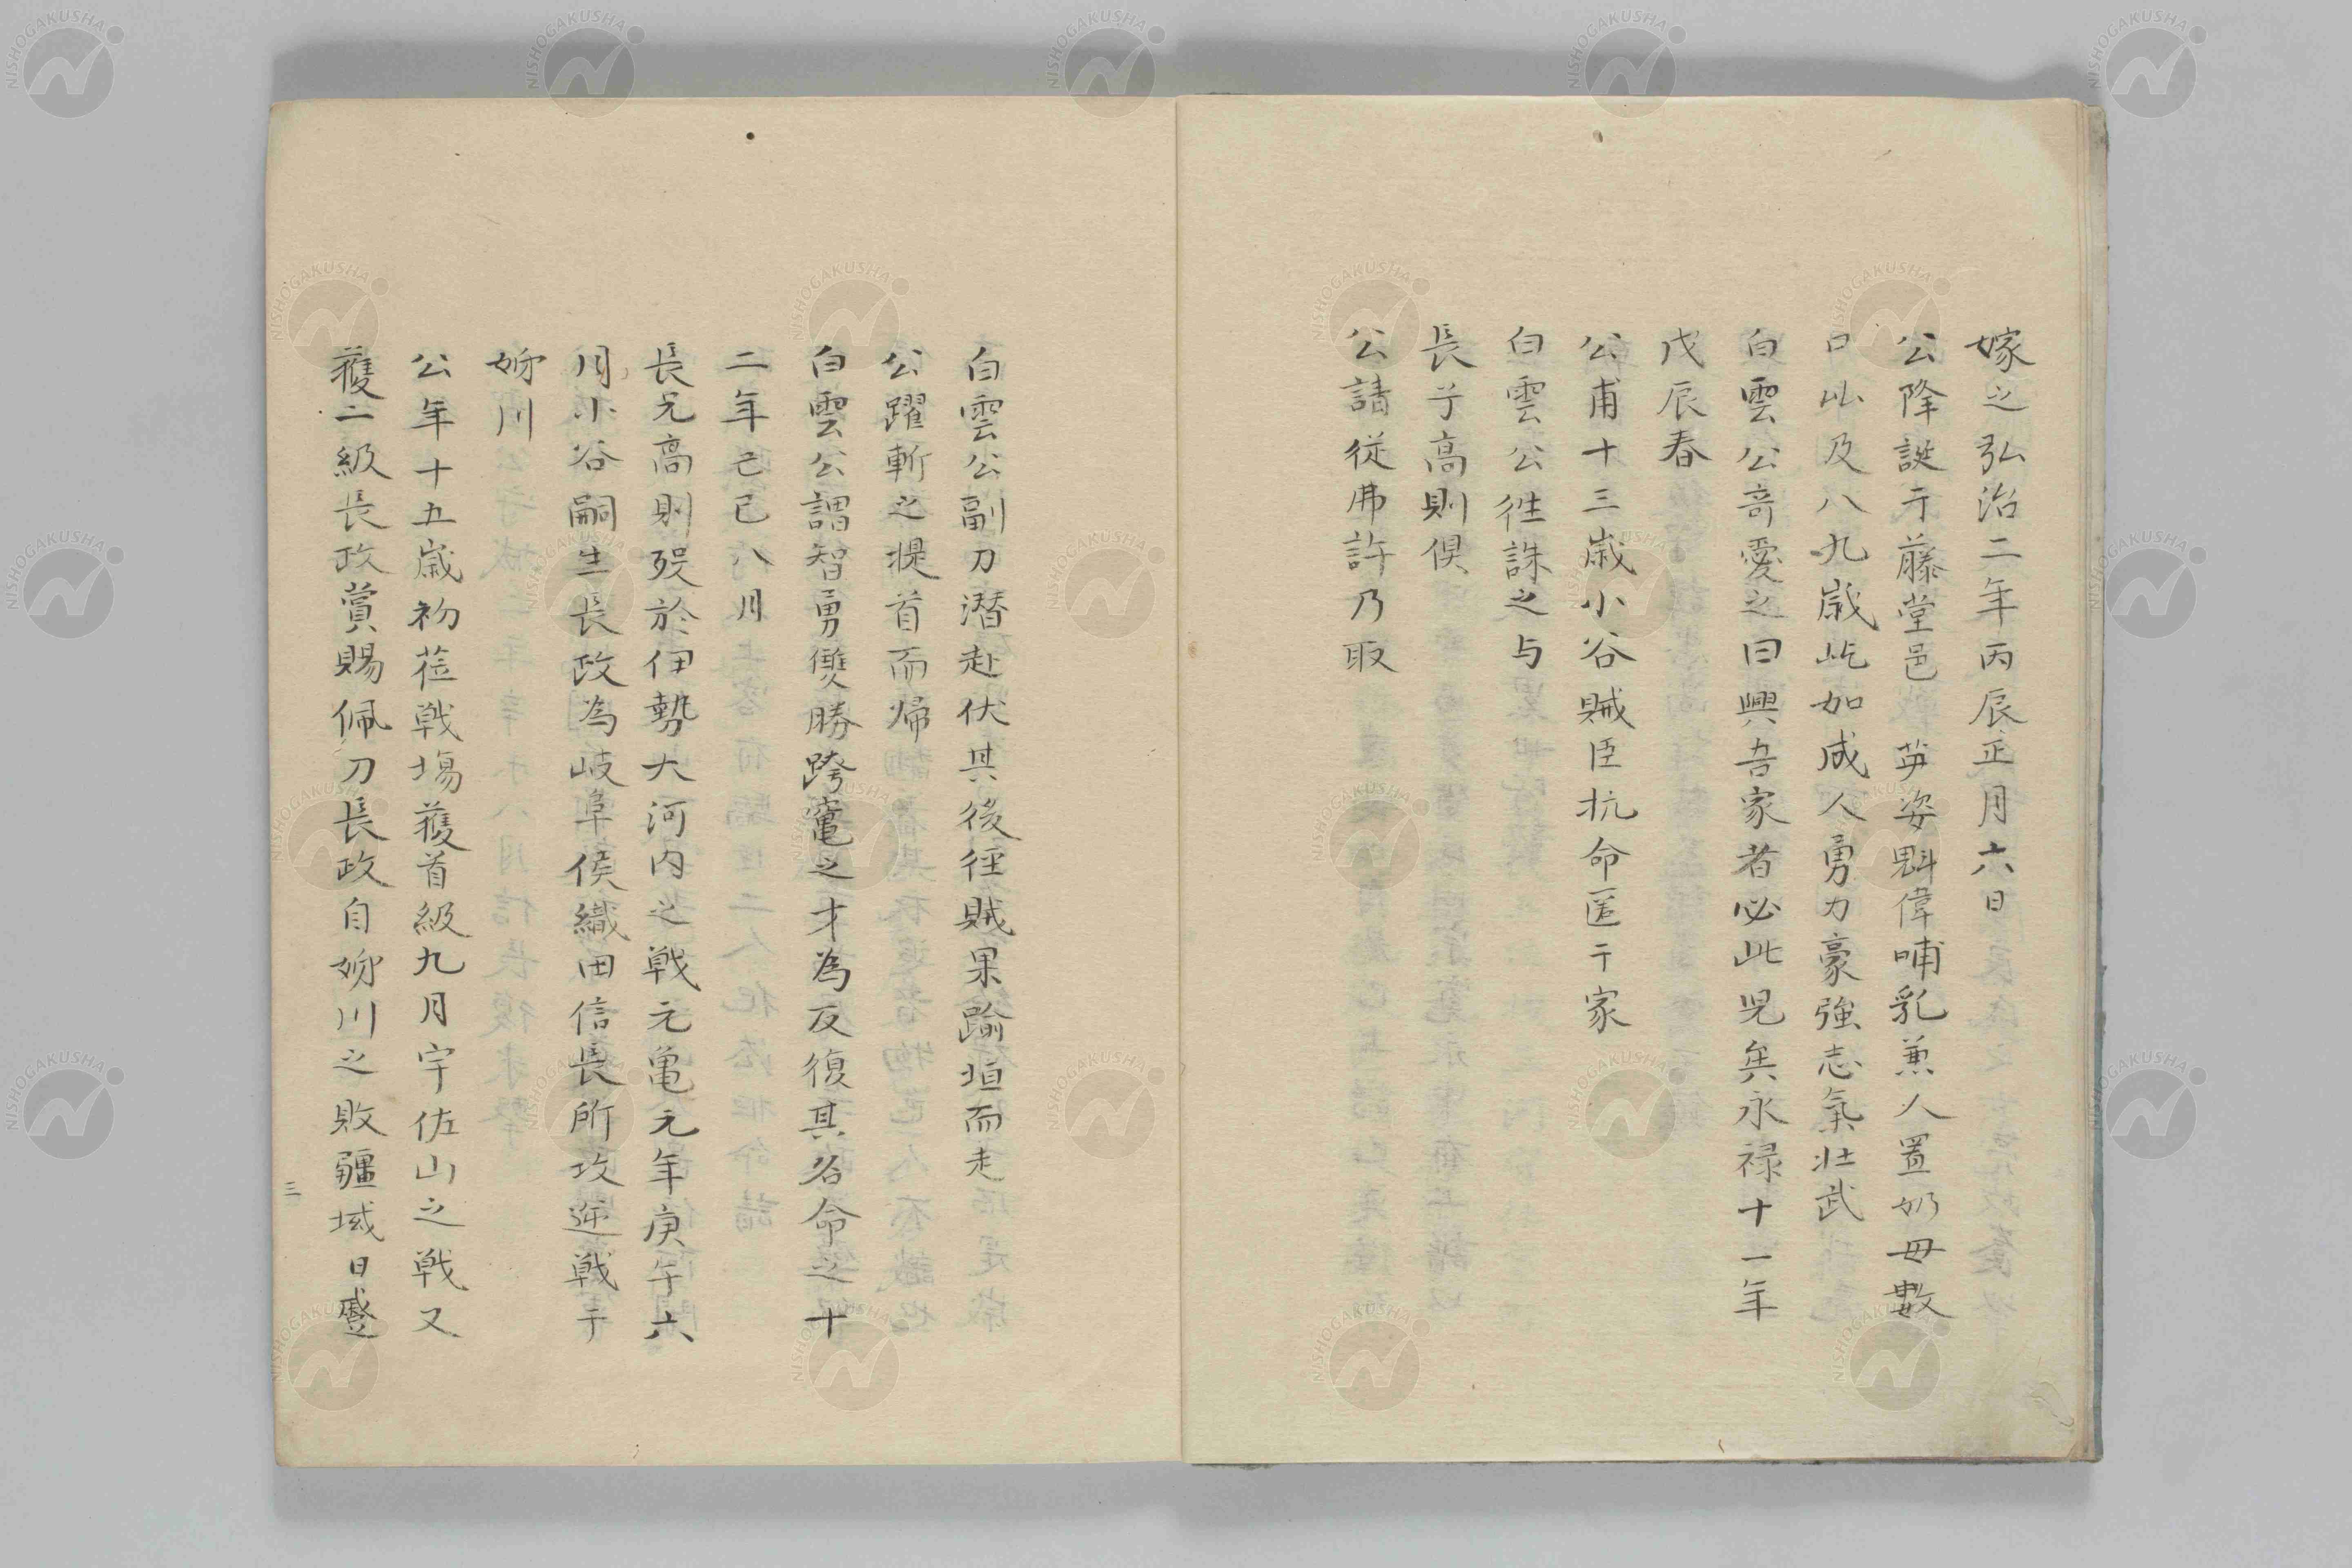 嫁之弘治二年丙辰正月六日
公降誕于藤堂邑英姿魁偉哺乳兼人置奶母數
口此及八九歳屹如成人勇力豪強志氣壮武
白雲公奇愛之曰興吾家者必此児矣永禄十一年
戊辰春
公甫十三歳小谷賊臣抗命匿于家
白雲公徃誅之与
長子高則倶
公請従弗許乃取
白雲公副刀潜赴伏其後径賊果踰垣而走
公躍斬之提首而帰
白雲公謂智勇雙勝跨竈之才為反復其名命之十
二年己巳八月
長兄高則歿於伊勢大河内之戦元亀元年庚午六
月小谷嗣主長政為岐阜侯織田信長所攻逆戦于
姉川
公年十五歳初莅戦場獲首級九月宇佐山之戦又
獲二級長政賞賜佩刀長政自姉川之敗疆域日蹙
三
NISHOGAKUSHA